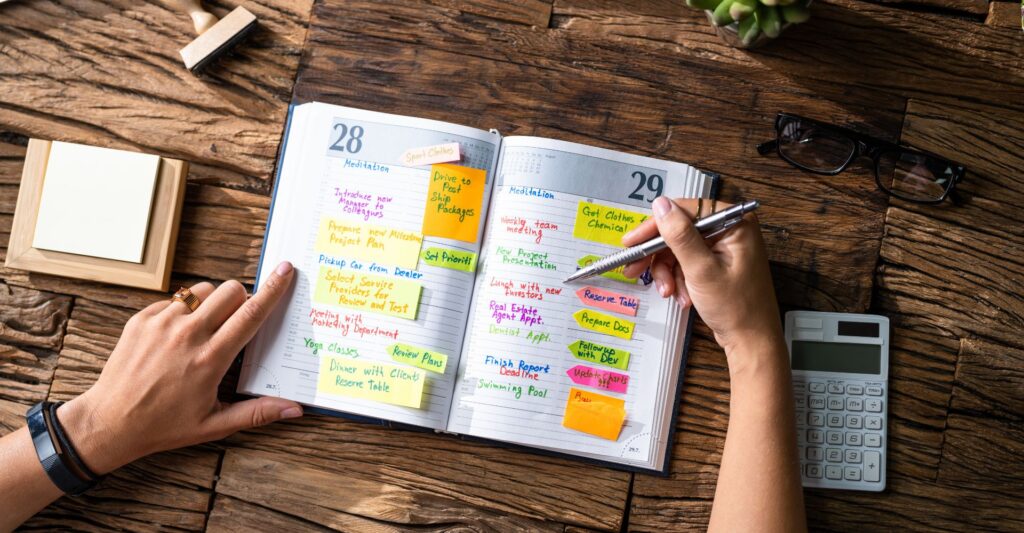 28
Sport Clothes
Meditation
Drive to
Post
Ship
Packages
Introduce new
Manager to
Colleagues
Prepare new Milestone
Project Plan
Set Prioriti
Pickup Car from Dealer
Select Service
Providers for
Review and Test
Meeting with
Marketing Department
Yoga Classes
Review Plans
Dinner with Clients
Reserve Table
29
August
Meditation
Get Clothes
Chemical
Weekly team
meeting
New Project
Presentation
Lunch with new
Investors
Reserve Table
Real Estate
Agent Appt.
Prepare Docs
Dentist Appt.
Followup
with Dev
Finish Report
Deadline
Update Charts
Swimming Pool